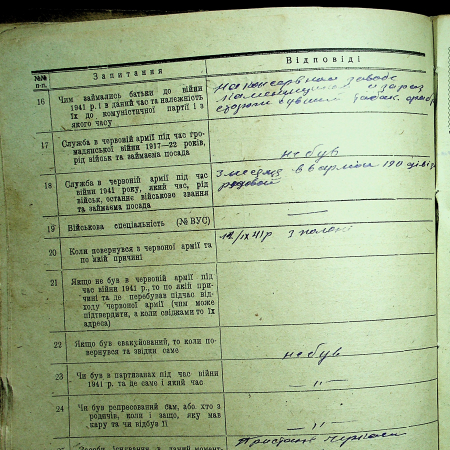 №№ п-п.
Запитання
Відповіді
16
Чим займались батьки до війни
1941 р. і в даний час та належність
їх до комуністичної партії і з
якого часу
На консервном заводе
17
Служба в червоній армії під час гро-
мадянської війни 1917—22 років,
рід військ та займаєма посада
не був
18
Служба в червоній армії під час
війни 1941 року, який час, рід
військ, останнє військове звання
та займаєма посада
3 месяца в 6 армии 190 дивіз
рядовой
19
Військова спеціальність (№ ВУС)
—
20
Коли повернувся з червоної армії та
по якій причині
/ІХ 41 р з полону
21
Якщо не був в червоній армії під
час війни 1941 р., то по якій при-
чині та де перебував підчас від-
ходу червоної армії (чим може
підтвердити, а коли свідками то їх
адреса)
—
22
Якщо був евакуйований, то коли по-
вернувся та звідки саме
не був
23
Чи був в партизанах під час війни
1941 р. та де саме і який час
— „ —
24
Чи був репресований сам, або хто з
родичів, коли і защо, яку мав
кару та чи відбув її
— „ —